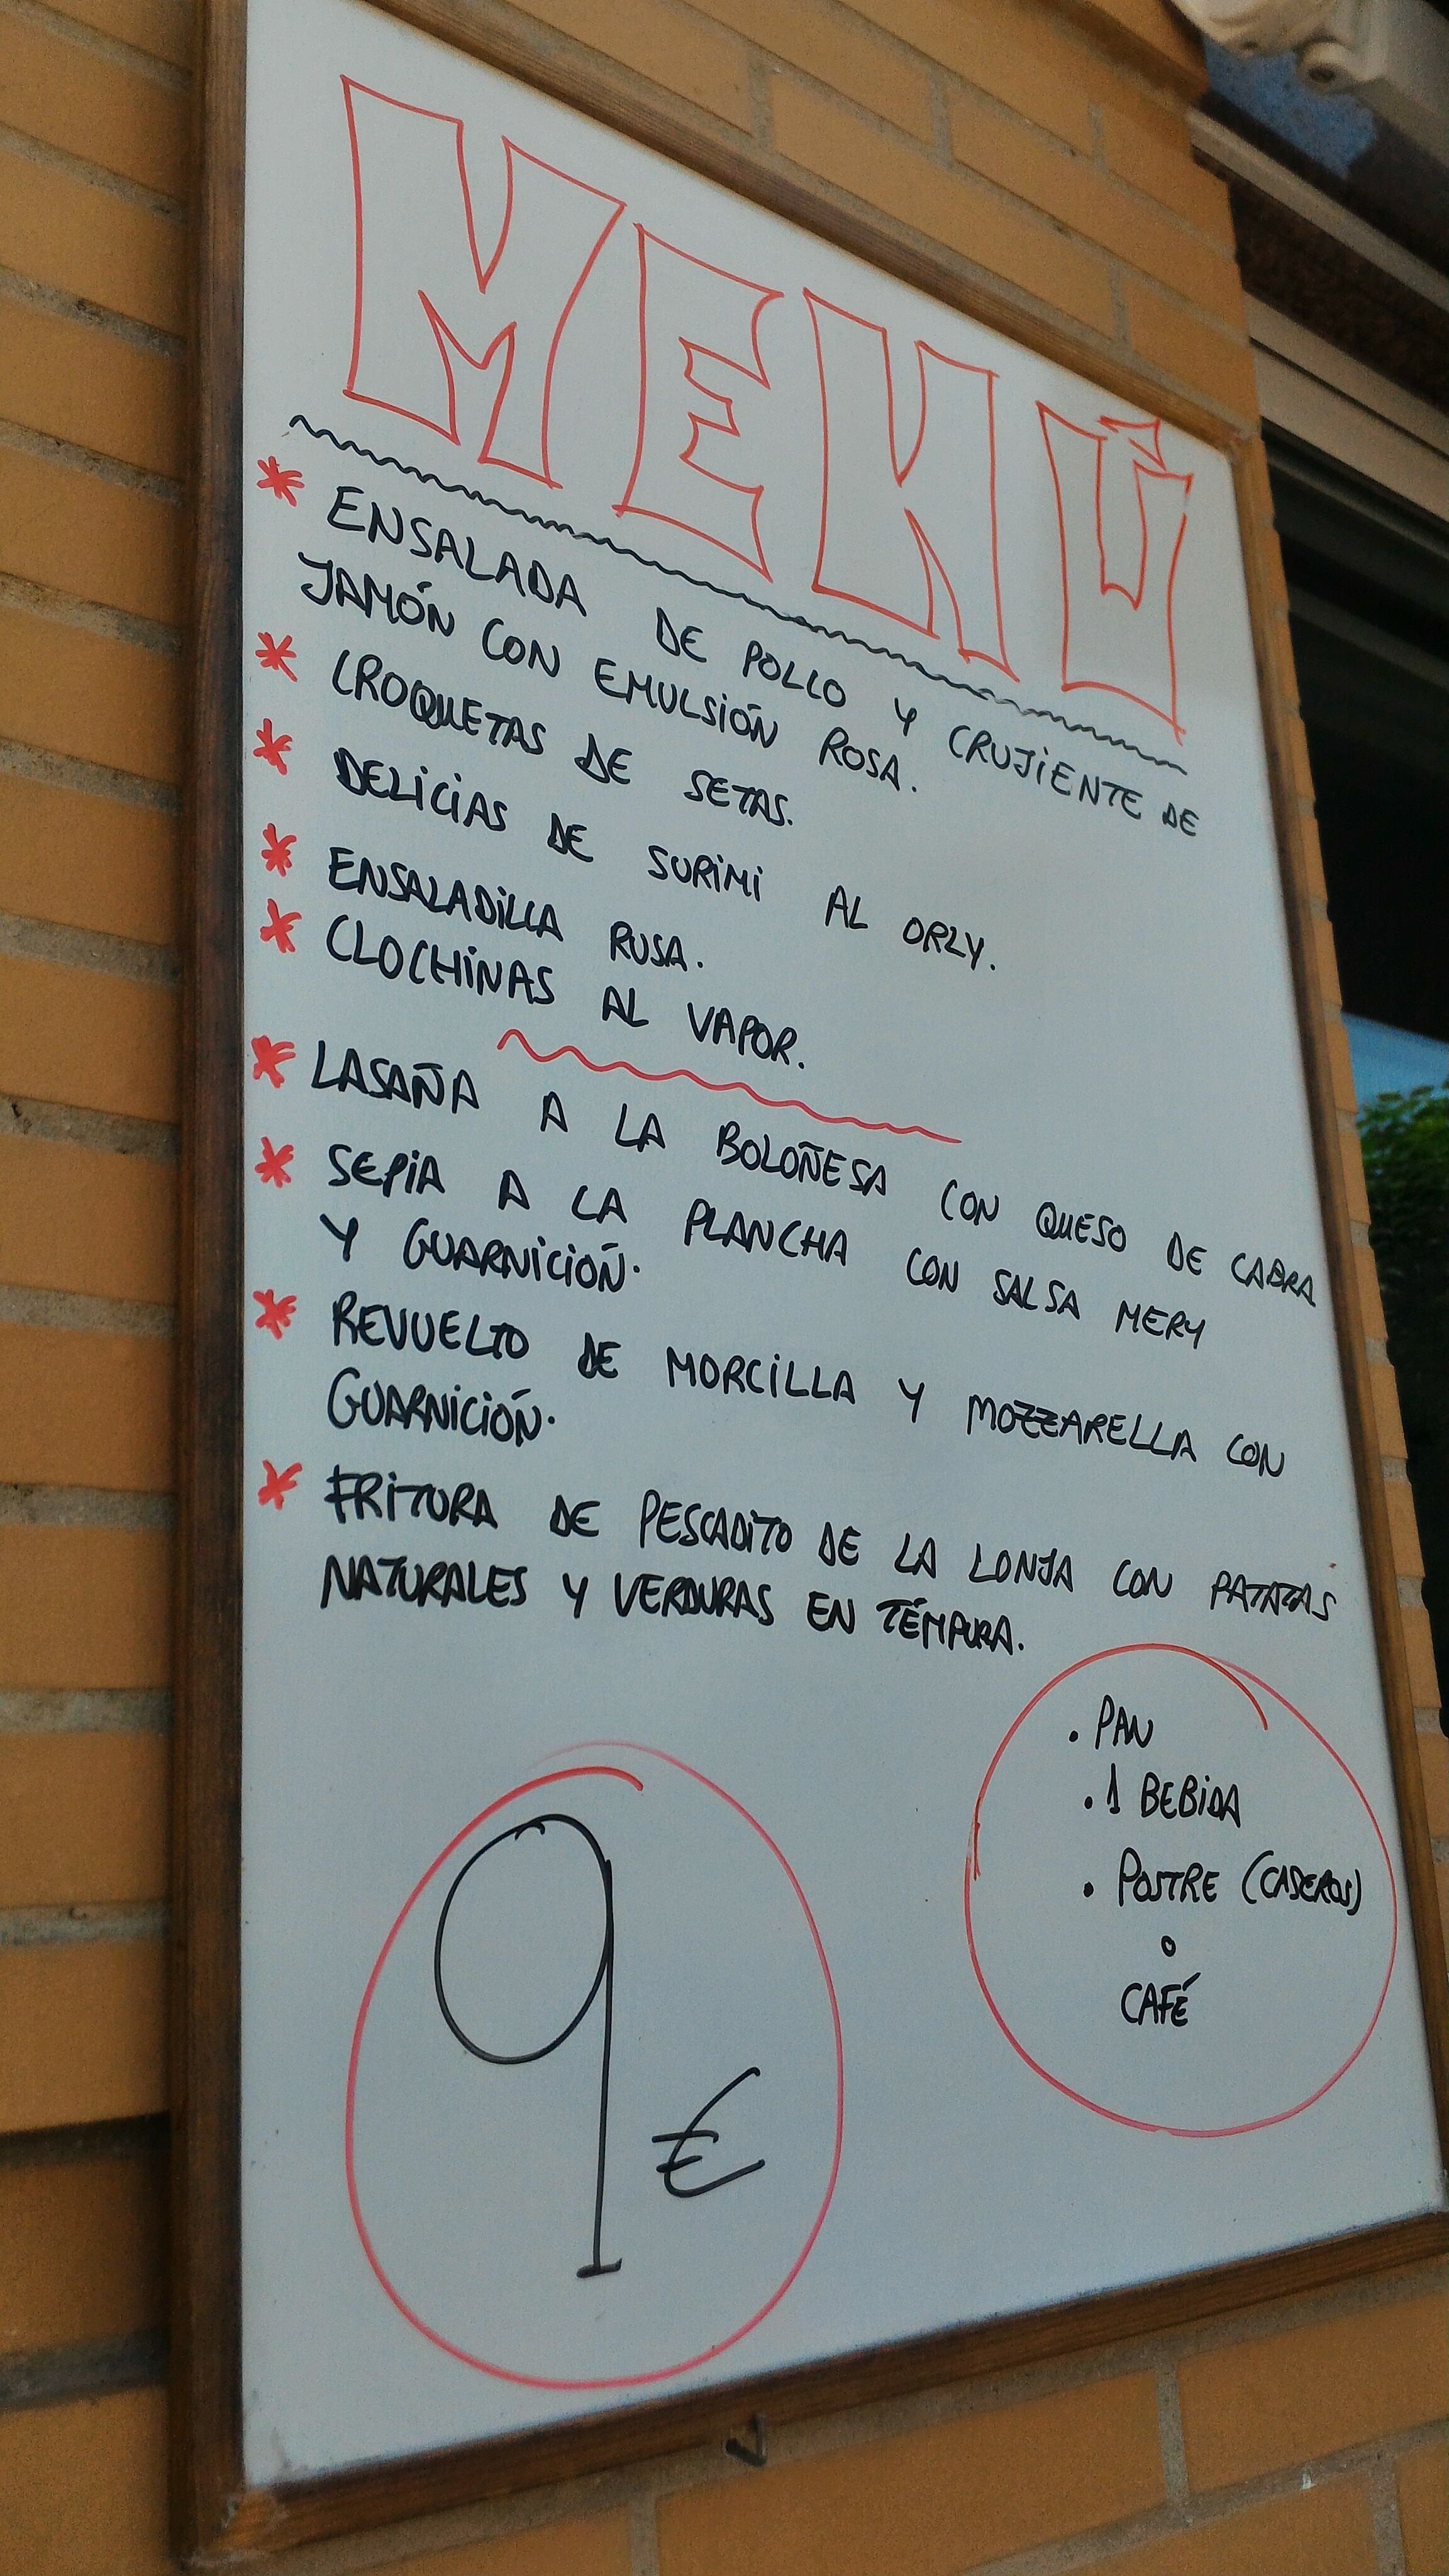 MENÚ
* ENSALADA DE POLLO Y CRUJIENTE DE
JAMÓN CON EMULSIÓN ROSA.
* CROQUETAS DE SETAS.
* DELICIAS DE SURIMI AL ORLY.
* ENSALADILLA RUSA.
* CLOCHINAS AL VAPOR.
* LASAÑA A LA BOLOÑESA CON QUESO DE CABRA
* SEPIA A LA PLANCHA CON SALSA MERY
Y GUARNICIÓN.
* REVUELTO DE MORCILLA Y MOZZARELLA CON
GUARNICIÓN.
* FRITURA DE PESCADITO DE LA LONJA CON PATATAS
NATURALES Y VERDURAS EN TÉMPURA.
. PAN
. 1 BEBIDA
. POSTRE (CASEROS)
o
CAFÉ
9 €